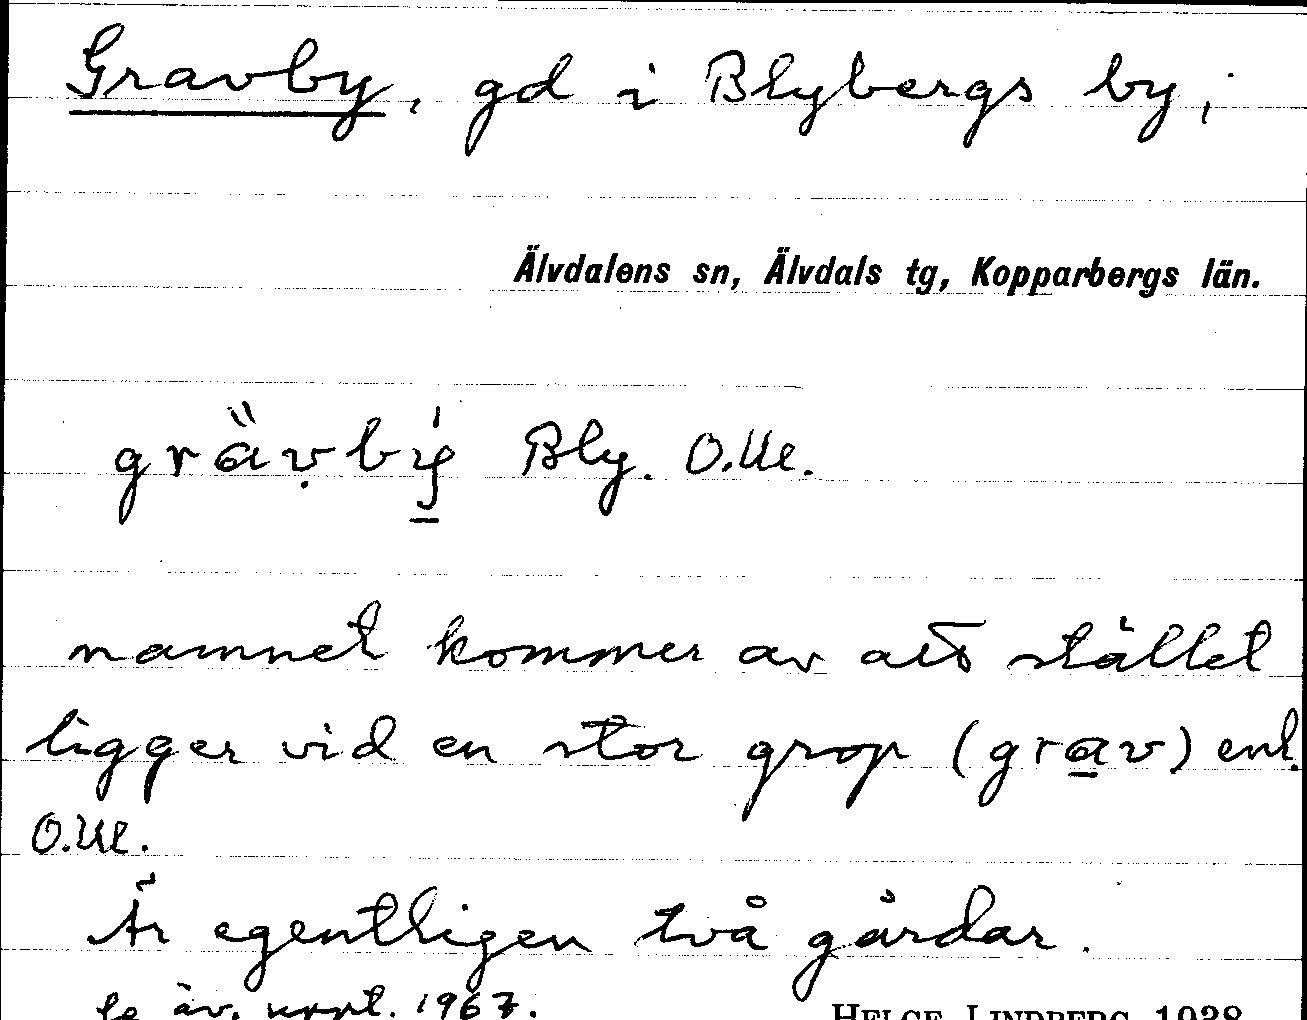 Gravby, gd i Blybergs by,
Älvdalens sn, Älvdals tg, Kopparbergs län.
grävby Bly. O.M.
namnet kommer av att stället
ligger vid en stor grop (grav) enl.
O.M.
Är egentligen två gårdar.
Se äv. uppt. 1967.
HELGE LINDBERG 1938